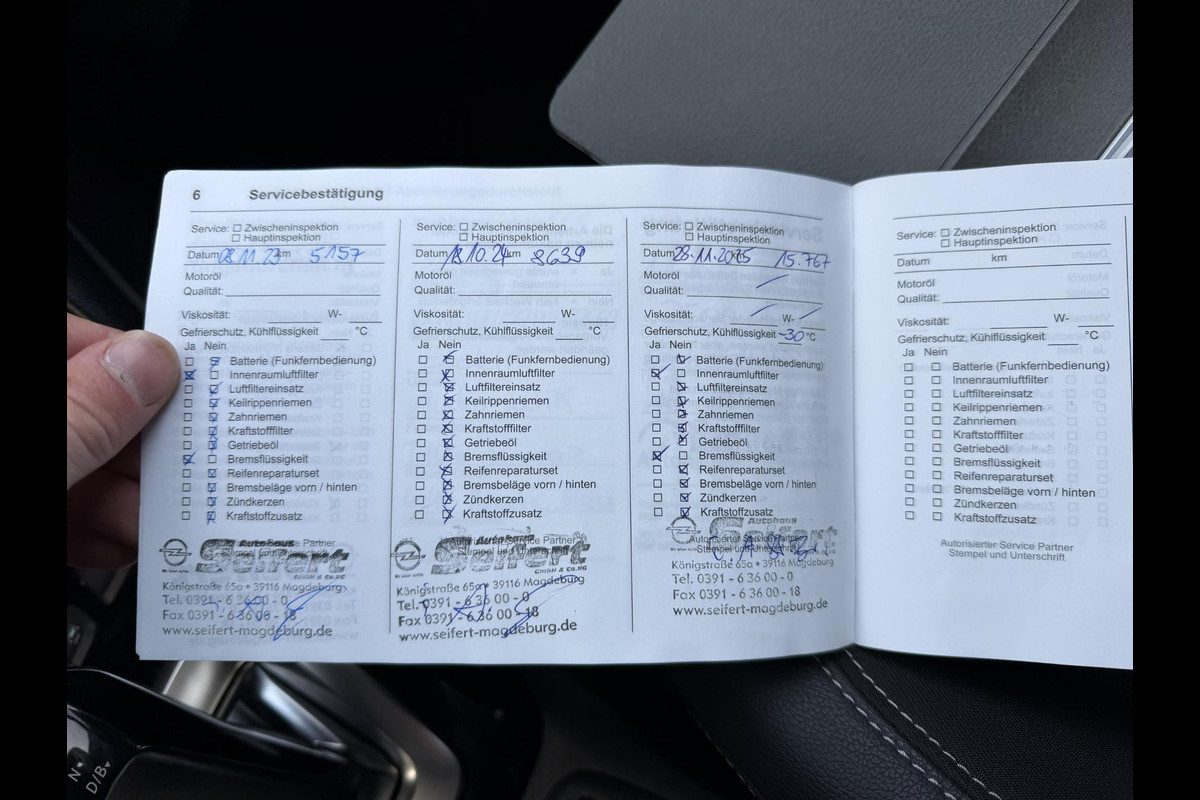 6 Servicebestätigung
Service: Zwischeninspektion
Hauptinspektion
Datum 08.11.23 km 5157
Motoröl
Qualität:
Viskosität: W-
Gefrierschutz, Kühlflüssigkeit °C
Ja Nein
Batterie (Funkfernbedienung)
Innenraumluftfilter
Luftfiltereinsatz
Keilrippenriemen
Zahnriemen
Kraftstofffilter
Getriebeöl
Bremsflüssigkeit
Reifenreparaturset
Bremsbeläge vorn / hinten
Zündkerzen
Kraftstoffzusatz
Autohaus Service Partner
Stempel und Unterschrift
Seifert
GmbH & Co.KG
Königstraße 65a • 39116 Magdeburg
Tel. 0391 - 6 36 00 - 0
Fax 0391 - 6 36 00 - 18
www.seifert-magdeburg.de
Service: Zwischeninspektion
Hauptinspektion
Datum 18.10.24 km 8639
Motoröl
Qualität:
Viskosität: W-
Gefrierschutz, Kühlflüssigkeit °C
Ja Nein
Batterie (Funkfernbedienung)
Innenraumluftfilter
Luftfiltereinsatz
Keilrippenriemen
Zahnriemen
Kraftstofffilter
Getriebeöl
Bremsflüssigkeit
Reifenreparaturset
Bremsbeläge vorn / hinten
Zündkerzen
Kraftstoffzusatz
Autohaus Service Partner
Stempel und
Seifert
GmbH & Co.KG
Königstraße 65a • 39116 Magdeburg
Tel. 0391 - 6 36 00 - 0
Fax 0391 - 6 36 00 - 18
www.seifert-magdeburg.de
Service: Zwischeninspektion
Hauptinspektion
Datum 28.11.2025 15.767
Motoröl
Qualität:
Viskosität: W-
Gefrierschutz, Kühlflüssigkeit -30 °C
Ja Nein
Batterie (Funkfernbedienung)
Innenraumluftfilter
Luftfiltereinsatz
Keilrippenriemen
Zahnriemen
Kraftstofffilter
Getriebeöl
Bremsflüssigkeit
Reifenreparaturset
Bremsbeläge vorn / hinten
Zündkerzen
Kraftstoffzusatz
Autohaus
Seifert
Autorisierter Service Partner
Stempel und Unterschrift
Königstraße 65a • 39116 Magdeburg
Tel. 0391 - 6 36 00 - 0
Fax 0391 - 6 36 00 - 18
www.seifert-magdeburg.de
Service: Zwischeninspektion
Hauptinspektion
Datum km
Motoröl
Qualität:
Viskosität: W-
Gefrierschutz, Kühlflüssigkeit °C
Ja Nein
Batterie (Funkfernbedienung)
Innenraumluftfilter
Luftfiltereinsatz
Keilrippenriemen
Zahnriemen
Kraftstofffilter
Getriebeöl
Bremsflüssigkeit
Reifenreparaturset
Bremsbeläge vorn / hinten
Zündkerzen
Kraftstoffzusatz
Autorisierter Service Partner
Stempel und Unterschrift
N
D/B